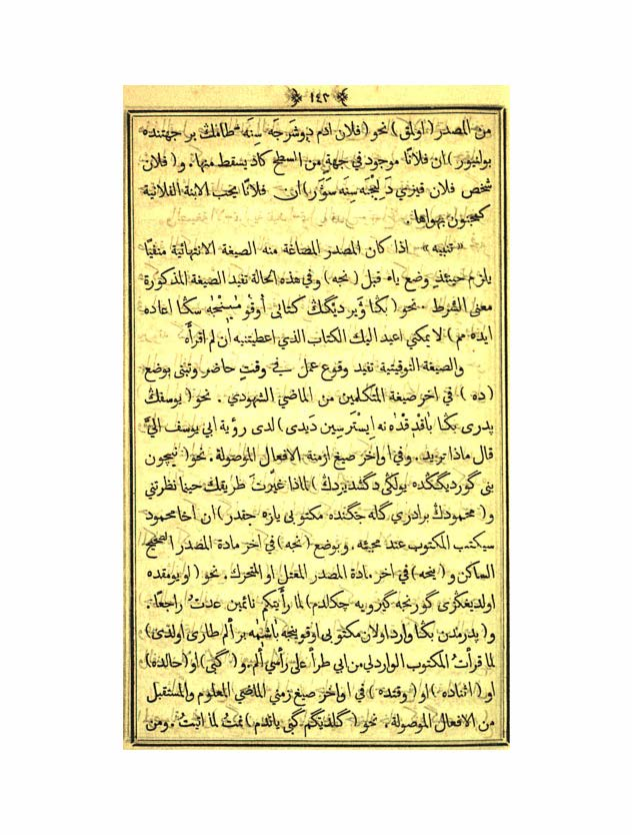 ١٤٢
من المصدر (اولمق) نحو (فلان ادم دوشرجه سنه طامك بر جهتنده
بولنيور) ان فلانًا موجود في جهةٍ من السطح كاد يسقط منها. و(فلان
شخص فلان قيزني سنه سَوَر) ان فلانًا يحب الابنة الفلانية
كمجنون بهواها.
«تنبيه» اذا كان المصدر المصاغة منه الصيغة الانتهائية منفيًا
يلزم حينئذٍ وضع ياء قبل (نجه) وفي هذه الحالة تفيد الصيغة المذكورة
معنى الشرط نحو (بكا ويرديكك كتابى سكا اعاده
ايده مم) لا يمكني اعيد اليك الكتاب الذي اعطيتنيه ان لم اقرأه
والصيغة التوقيتية تفيد وقوع عمل في وقتٍ حاضر وتبنى بوضع
(ده) في اخر صيغة المتكلمين من الماضي الشهودي. نحو (يوسفك
پدرى بكا باقدقده نه ايسترسين ديدى) لدى رؤية ابي يوسف اليَّ
قال ماذا تريد. وفي اواخر صيغ ازمنة الافعال الموصولة. نحو (نيچون
بنى گورديگكده يولكى دگشديردك) لماذا غيّرت طريقك حينما نظرتني
و(محمودك برادرى گله جگنده مكتوبى يازه جقدر) ان اخا محمود
سيكتب المكتوب عند مجيئه. وبوضع (نجه) في اخر مادة المصدر الصحيح
الساكن و(ينجه) في اخر مادة المصدر المعتل او المتحرك. نحو (اويومقده
اولديغكزى گورنجه گيرويه چكلدم) لما رأيتكم نائمين عدتُ راجعًا.
و(پدرمدن بكا وارد اولان مكتوبى اوقوينجه باشمه بر ألم طارى اولدى)
لما قرأتُ المكتوب الوارد لي من ابي طرأ على رأسي ألم. و(گبى) او (حالده)
او (اثناده) او (وقتده) في اواخر صيغ زمني الماضي المعلوم والمستقبل
من الافعال الموصولة. نحو (گلديگم گبى ياتدم) نمتُ لما اتيتُ. ومن